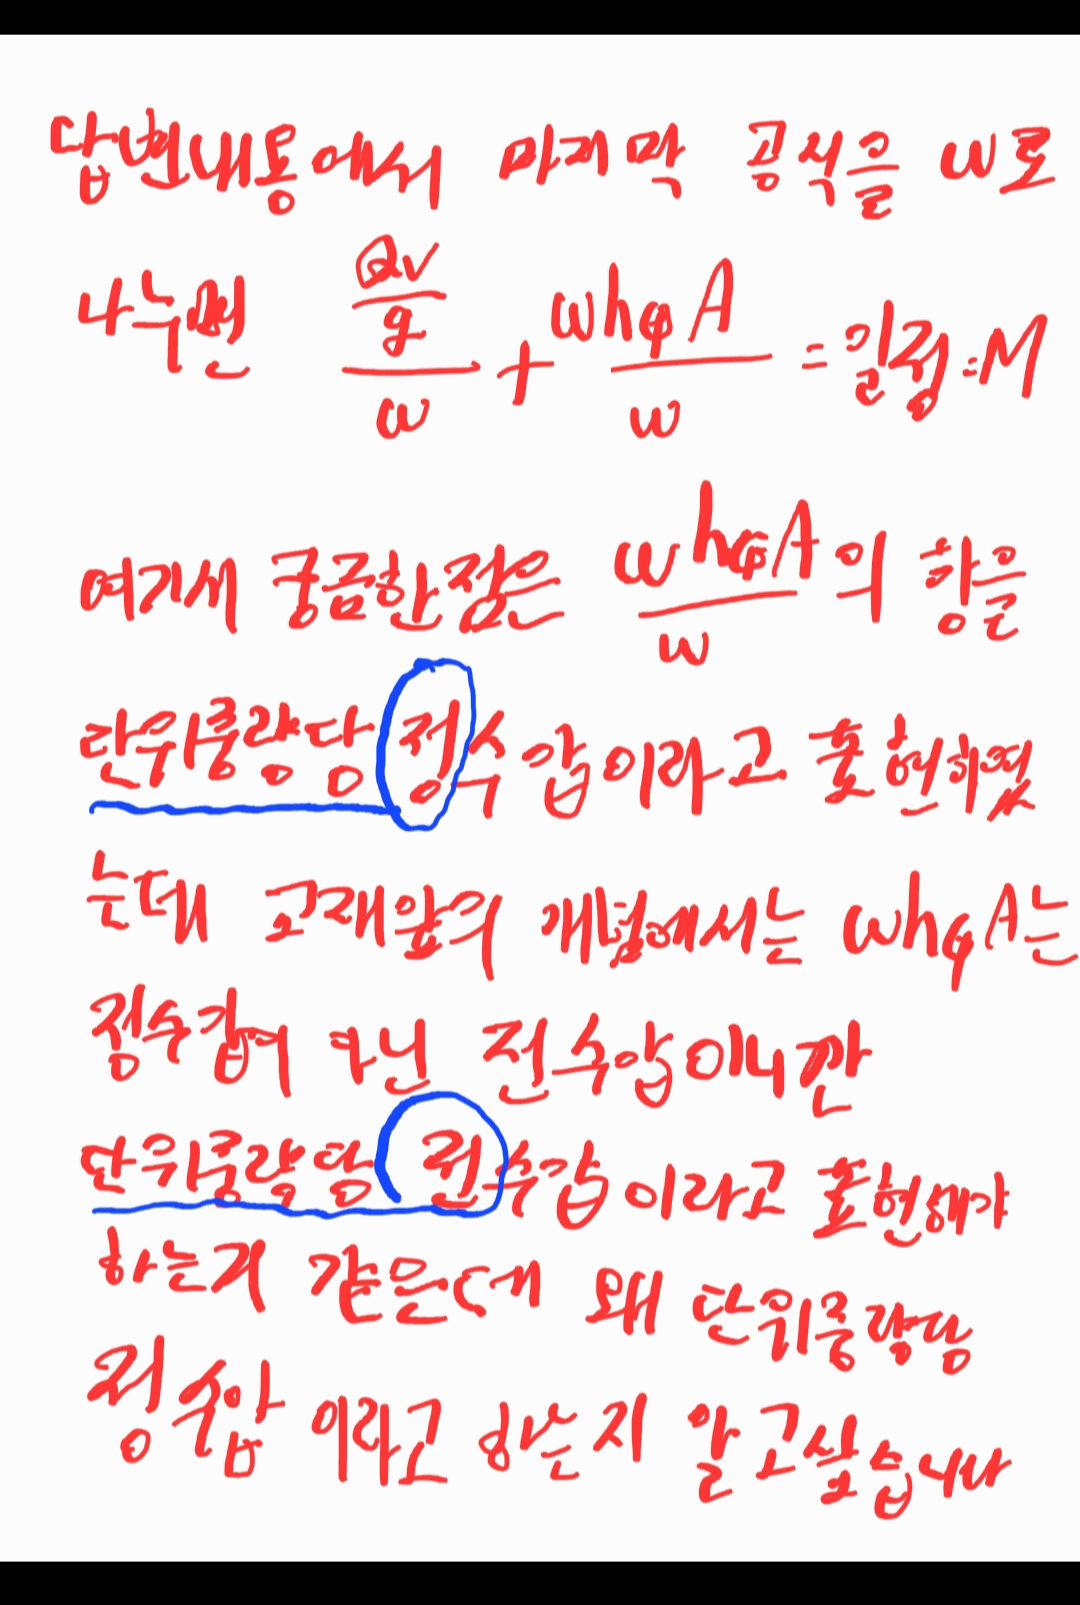 답변내용에서 마지막 공식을 w로
나누면 \frac{\frac{Qv}{g}}{w} + \frac{wh_{G}A}{w} = 일정 = M
여기서 궁금한점은 \frac{wh_{G}A}{w}의 항을
단위중량당 정수압이라고 표현하였
는데 교재앞의 개념에서는 wh_{G}A는
정수압이 아닌 전수압이니깐
단위중량당 전수압이라고 표현해야
하는거 같은데 왜 단위중량당
정수압 이라고 하는지 알고싶습니다